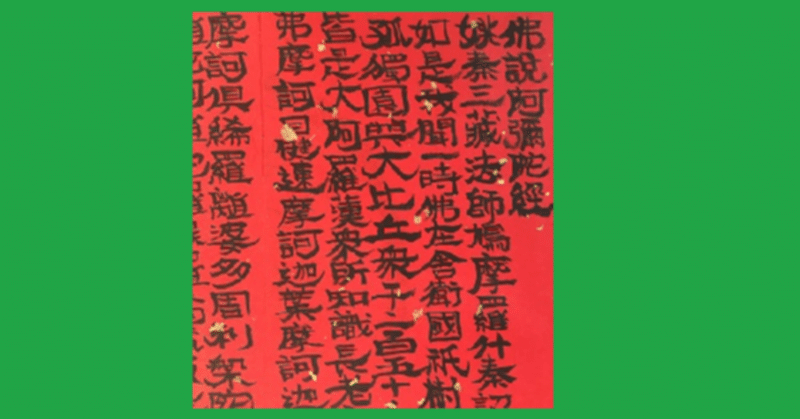 佛說阿彌陀經
姚秦三藏法師鳩摩羅什奉詔
如是我聞一時佛在舍衛國祇樹
孤獨園與大比丘衆千二百五十
皆是大阿羅漢衆所知識長老
弗摩訶目犍連摩訶迦葉摩訶迦
摩訶俱絺羅離婆多周利槃陀